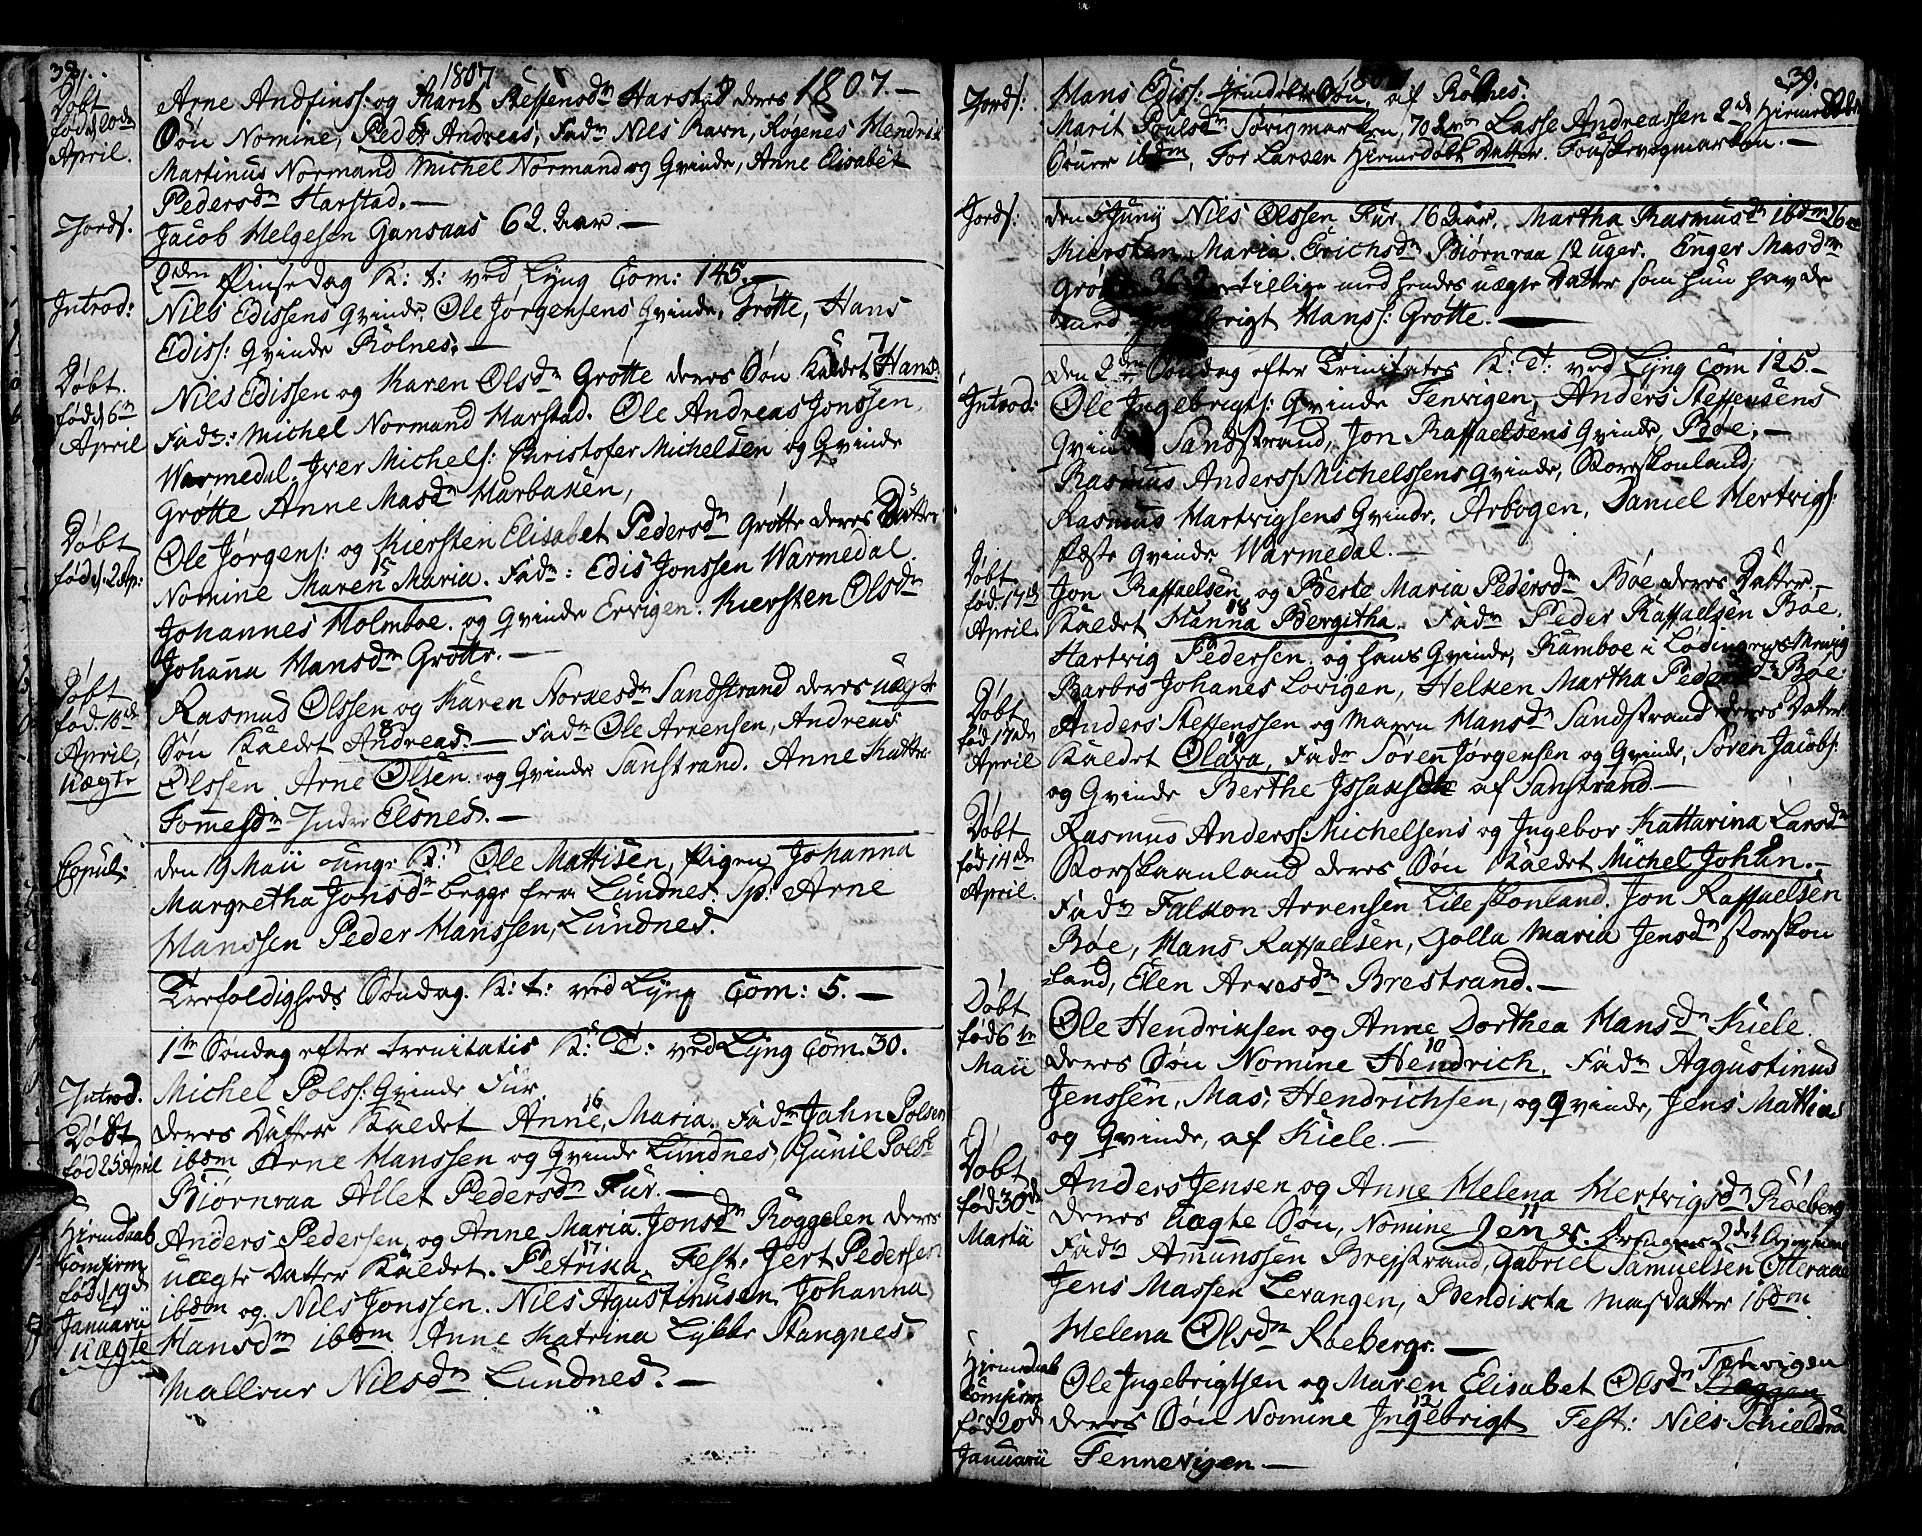 38.
1807
Døbt
født 20de
April.
Arne Andfinss: og Marit Steffensdn Harstad deres 1807.—
Søn Nomine, Peder Andreas, Fadn Nils Ravn, Røgenes Hendrik
Martinus Normand Michel Normand og Qvinde, Anne Elisabet
Pedersdn Harstad.—
Jords.
Jacob Helgesen Gansaas 62. Aar.—
2den Pinsedag K: t: ved Lyng Com: 145.—
Introd:
Nils Edissens Qvinde, Ole Jørgensens Qvinde, Grøtte, Hans
Ediss: Qvinde Rolnes.—
Døbt.
fød d 6te
April
7
Nils Edissen og Karen Olsdn Grøtte deres Søn Kaldet Hans.
Fadn: Michel Normand Harstad. Ole Andreas Jonssen,
Warmedal. Iver Michels: Christofer Michelsen og Qvinde
Grøtte Anne Masdn Harbaken,
Døbt
fød d: 2 Apr:
Ole Jørgens: og Kiersten Elisabet Pedersdn Grøtte deres Datter
15
Nomine Maren Maria. Fadn: Edis Jonssen Warmedal.
Johannes Holmboe. og Qvinde Ervigen. Kiersten Olsdn
Johana Hansdn Grøtte.—
Døbt
fød 16de
April,
Uægte
Rasmus Olssen og Karen Norkesdn Sandstrand deres uægt
8
Søn Kaldet Andreas.— Fadn Ole Arrensen, Andreas
Olssen, Arne Olsen og Qvinde Sanstrand. Anne Katter
Tomesdn Indre Elsnes.—
Copul:
den 9 Maii unge K: Ole Mattisen, Pigen Johanna
Margretha Jonsdn begge fra Lundnes. Sp: Arne
Hanssen Peder Hanssen, Lundnes.
Trefoldigheds Søndag. K: t: ved Lyng Com: 5.—
1te Søndag efter trenitatis K: T: ved Lyng Com. 30.
Introd.
Michel Polss: Qvinde Fur.
Døbt
fød 25 April
16
deres Datter Kaldet Anne Maria. Fadn Jahn Polsen
ibdm Arne Hanssen og Qvinde Lundnes, Gunil Polsd
Biørnraa Allet Pedersdn Fur.—
Hiemdaab
Comfirm
fød d 19de
Januarii
uægte
Anders Pedersen og Anne Maria Jonsdn Røggelen deres
17
uægte Datter Kaldet. Petrika, Test. Jert Pedersen
ibdm og Nils Jonssen. Nils Agustinusen, Johanna
Hansdn ibdm Anne Katrina Lykke Stangnes.
Mallene Nilsdn Lundnes.—
39.
Jords:
Hans Ediss: hiemdøbte Søn, af Rolnes.
Marit Poulsdn Sørigmarken, 70 Aar Lasse Andreassen 2de Hiemedøbte
Sønner ibdm, Tor Larsen Hiemedøbt Datter. Fouskevogmarken.—
Jords:
den 5 Juny Nils Olssen Fur, 16 Aar. Martha Rasmusdn ibdm 26
Kirstan Maria Erichsdn Biørnraa 12 uger. Enger Masdn
tillige med hendes uægte Datter som hun havde
Hanss: Grøtte.—
den 2den Søndag efter Trinitates K: T: ved Lyng Com 125.—
Introd:
Ole Ingebrigts: Qvinde Tenvigen, Anders Steffensens
Qvinde Sandstrand, Jon Raffaelsens Qvinde, Bøe.—
Rasmus Anderss: Michelssens Qvinde, Storskonland,
Rasmus Hartvigsens Qvinde, Arbogen, Daniel Hertvigs:
fæste Qvinde Warmedal.—
Døbt
fød. 17de
April
Jon Raffaelsen og Berte Maria Pedersdn Bøe deres Datter
18
Kaldet Hanna Bergitha. Fadn Peder Raffaelsen Bøe.
Hartvig Pedersen og hans Qvinde, Kamboe i Lødingens Menig
Barbro Johanes Lovigen, Helken Martha Pedersdn Bøe.
Døbt
fød 13de
April
Anders Steffenssen og Maren Hansdn Sandstrand deres Datter
19
Kaldet Olava, Fadn Søren Jørgensen og Qvinde, Søren Jacobs:
og Qvinde Berthe Issaksdtr af Sanstrand.—
Døbt
fød 14de
April.
Rasmus Anderss: Michelsens og Ingebor Kattarina Larsdn
Storskaanland deres Søn Kaldet Michel Johan.—
Fadn Falkon Arrensen Lileskonland. Jon Raffaelsen
Bøe, Hans Raffaelsen, Golla Maria Jensdn Storskon
land, Elen Arnesdn Brestrand.—
Døbt
fød 6te
Maii
Ole Hendriksen og Anne Dorthea Hansdn Kiele.
10
deres Søn Nomine Hendrich. Fadn Aggustinus
Jenssen, Mas, Hendrichsen, og Qvinde, Jens Mattias
og Qvinde, af Kiele.—
Døbt
fød 30de
Martii
Anders Jensen og Anne Helena Hertvigsdn Røeberg
11
deres uægte Søn, Nomine Jens.
Fadn Amunssen Brestrand, Gabriel Samuelsen Otteraae
Jens Massen Levangen, Bendikta Masdatter ibdm
Helena Olsdn Roeberg.—
Hiemedaab
Comfirm
fød 20de
Januarii
Tenvigen
Ole Ingebrigtsen og Maren Elisabet Olsdn
12
deres Søn Nomine Ingebrigt Test: Nils Schieldraa
Tennevigen—